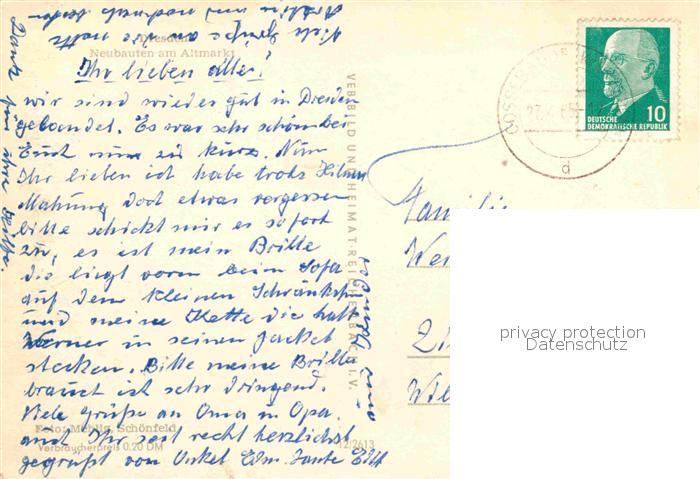 Dresden
Neubauten am Altmarkt
Ihr lieben alle!
wir sind wieder gut in Dresden
gelandet. Es war sehr schön bei
Euch nur zu kurz. Nun
Ihr lieben ich habe trotz
Mahnung doch etwas vergessen
bitte schickt mir es sofort
zu, es ist mein Brille
die liegt vorn beim Sofa
auf dem kleinen Schränkchen
und meine Kette die hatt
Werner in seinen Jacket
stecken. Bitte meine Brille
braucht ist sehr dringend.
Viele Grüße an Oma u Opa.
auch Ihr seit recht herzlichst
gegrüßt von Onkel Edm. Tante Edith
Viele Grüße an
Dank für
VEB BILD UND HEIMAT·REICHENBACH I. V.
Foto: Mehlig, Schönfeld
Verbraucherpreis 0,20 DM
12/2613
DEUTSCHE
DEMOKRATISCHE REPUBLIK
10
d
Familie
privacy protection
Datenschutz